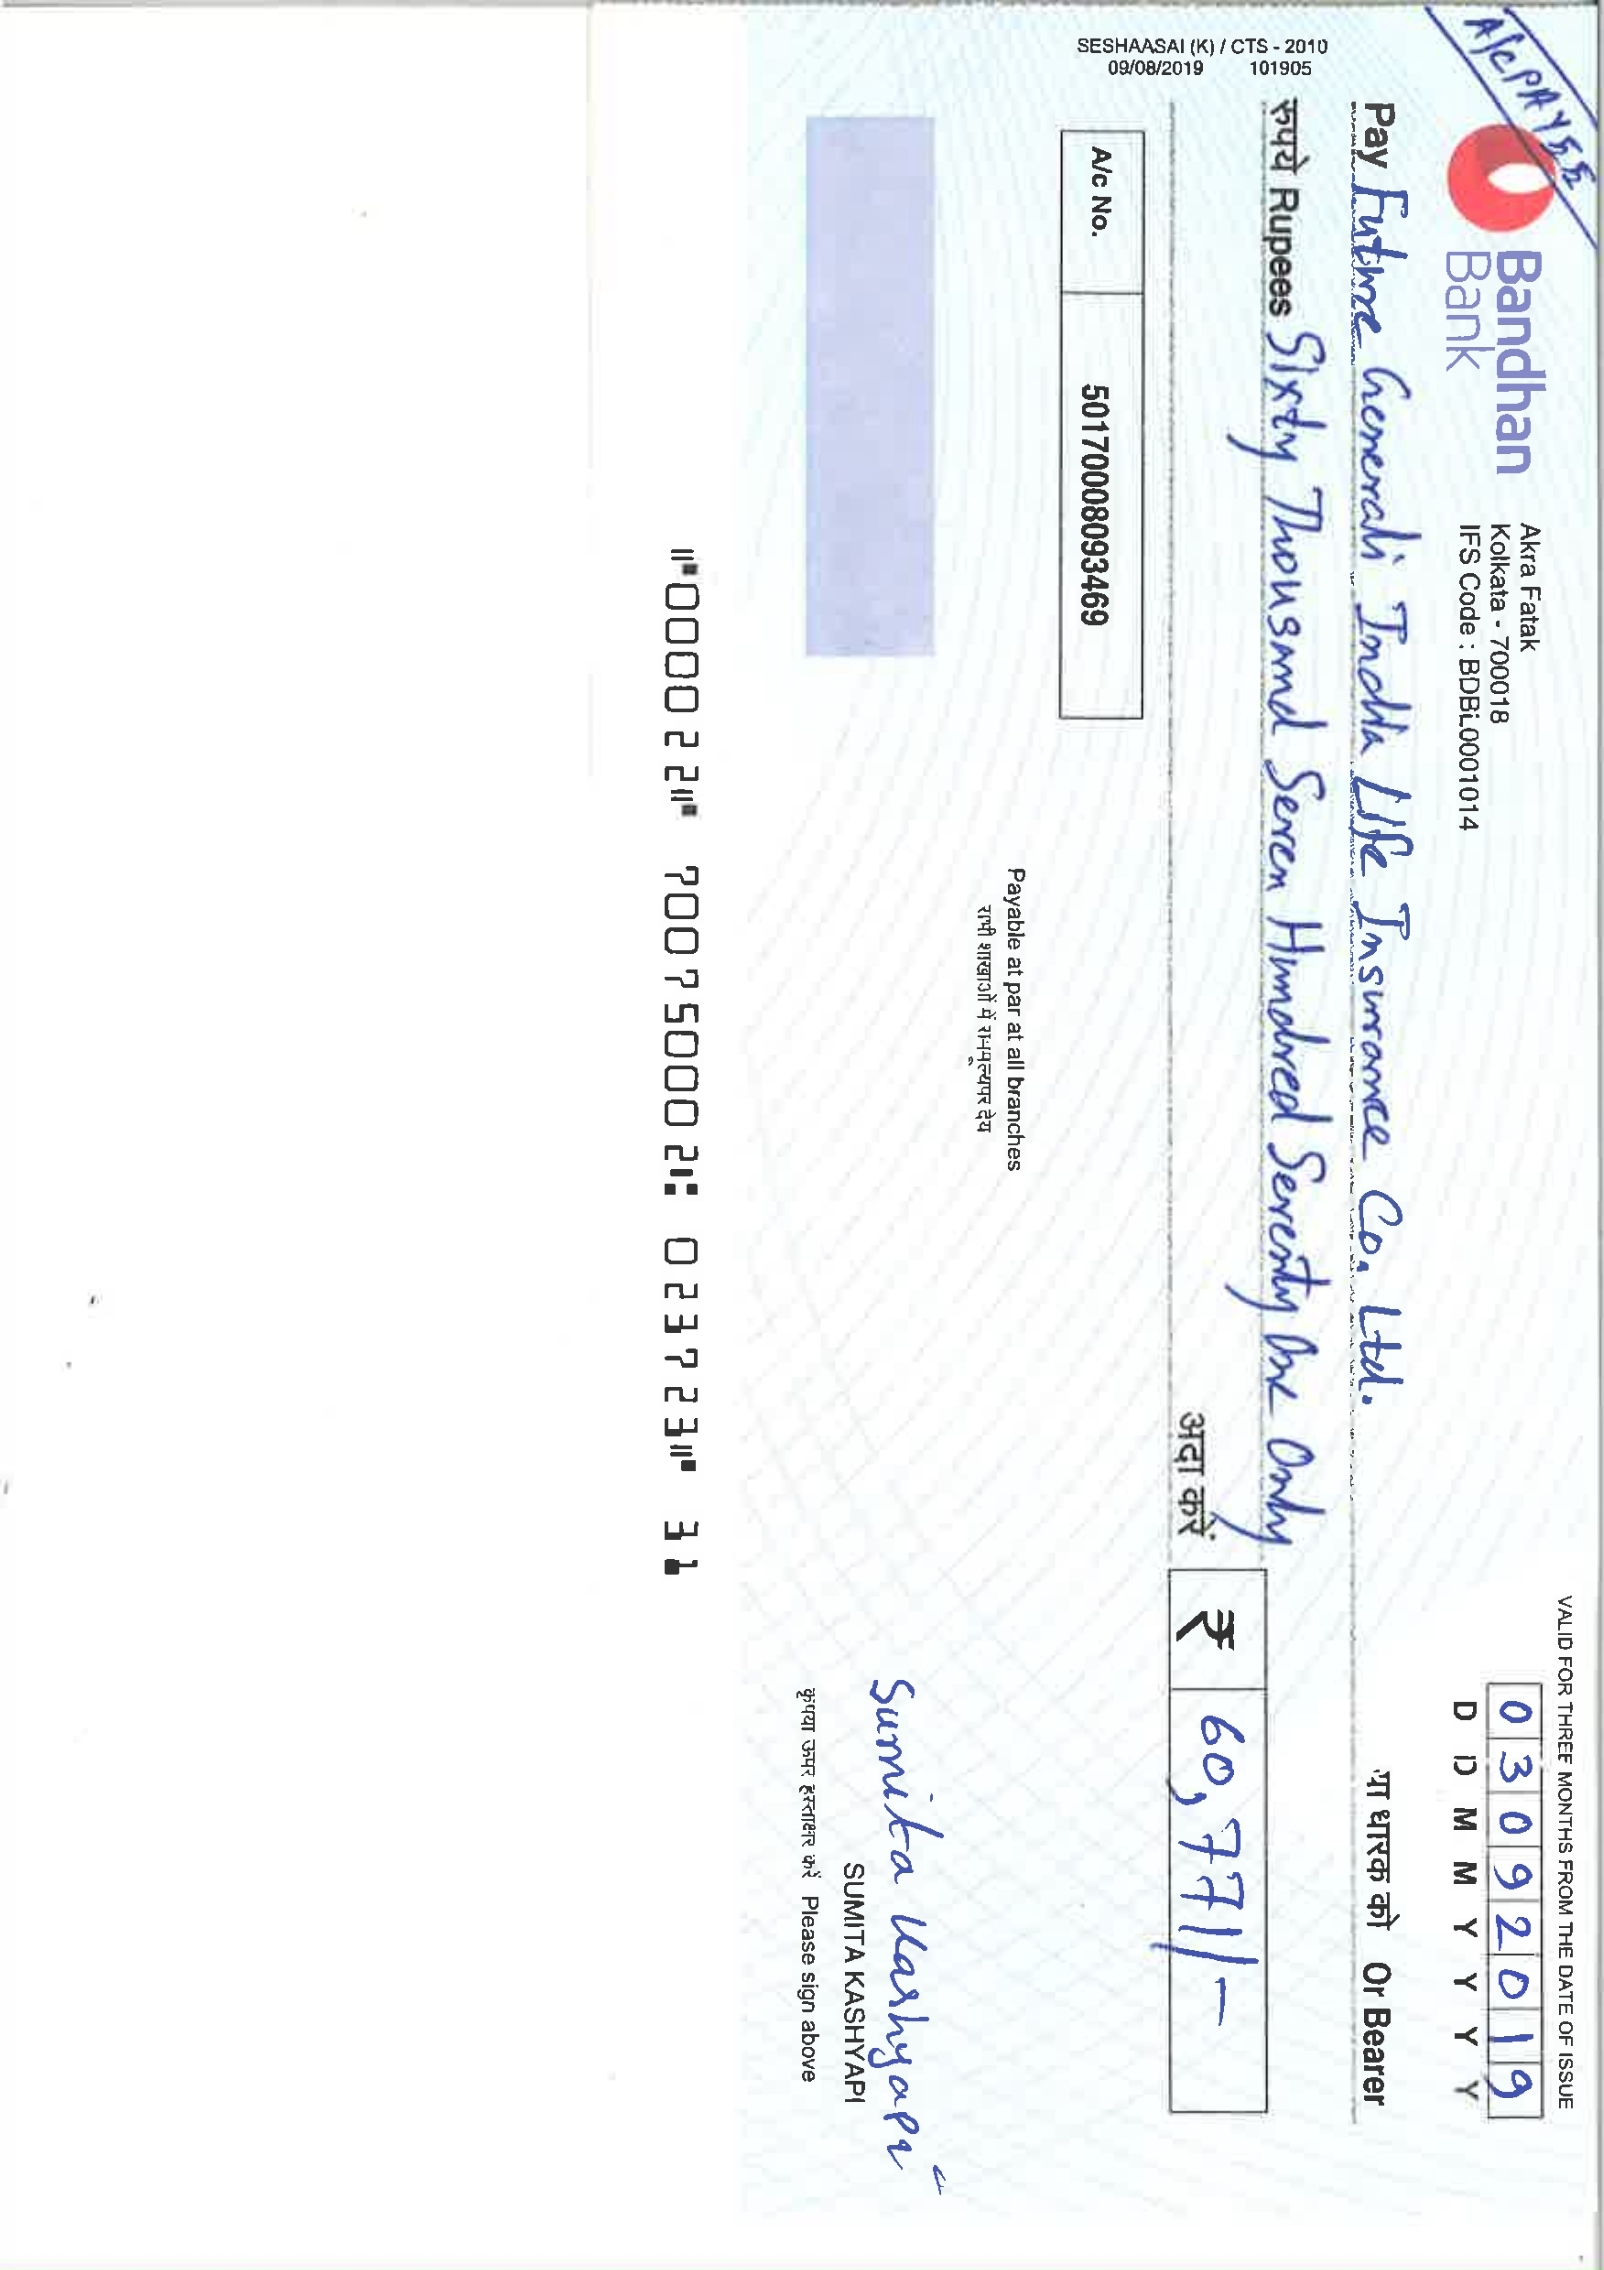 A/C PAYEE
Bandhan
Bank
Akra Fatak
Kolkata - 700018
IFS Code : BDBL0001014
VALID FOR THREE MONTHS FROM THE DATE OF ISSUE
0 3 0 9 2 0 1 9
D D M M Y Y Y Y
Pay Future Generali India Life Insurance Co. Ltd.
या धारक को Or Bearer
रूपये Rupees Sixty Thousand Seven Hundred Seventy One Only
अदा करें ₹ 60,771/-
A/c No. 50170008093469
SESHAASAI (K) / CTS - 2010
09/08/2019 101905
Payable at par at all branches
सभी शाखाओं में सममूल्यपर देय
Sumita Kashyapi
SUMITA KASHYAPI
कृपया ऊपर हस्ताक्षर करें Please sign above
⑈000022⑈ 700750002⑆ 023723⑈ 31